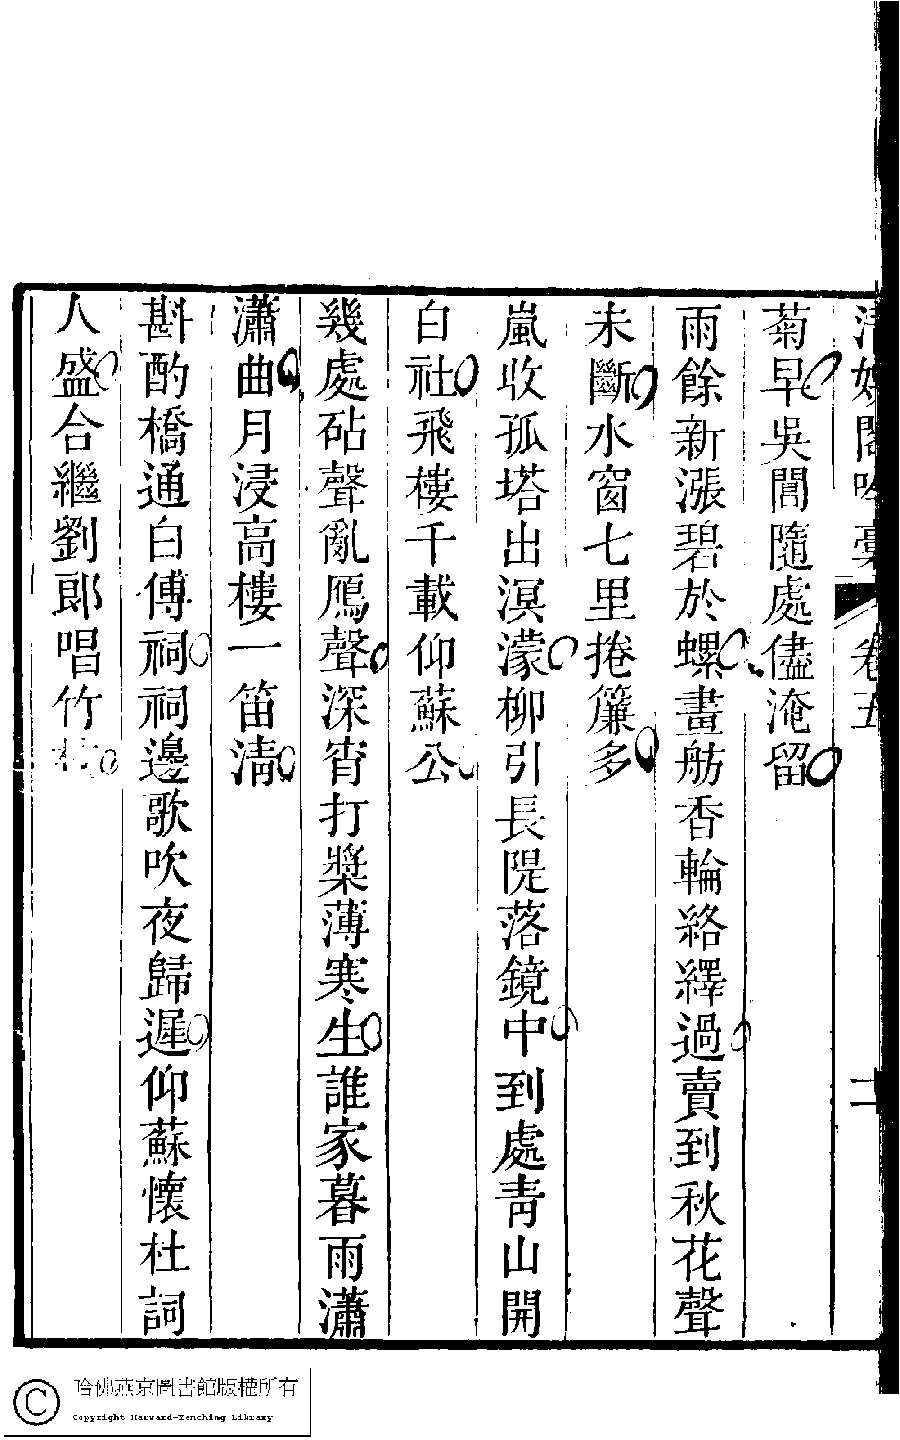 清娛閣吟藁 卷五 二
菊早吳閶隨處儘淹留
雨餘新漲碧於螺畫舫香輪絡繹過賣到秋花聲
未斷水窗七里捲簾多
嵐收孤塔出溟濛柳引長隄落鏡中到處青山開
白社飛樓千載仰蘇公
幾處砧聲亂鴈聲深宵打槳薄寒生誰家暮雨瀟
瀟曲月浸高樓一笛清
斟酌橋通白傅祠祠邊歌吹夜歸遲仰蘇懷杜詞
人盛合繼劉郎唱竹枝
哈佛燕京圖書館版權所有
Copyright Harvard-Yenching Library